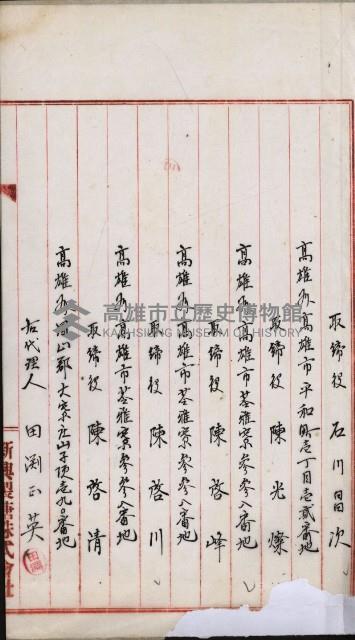 取締役 石川昌次
高雄州高雄市平和町壱丁目壱貳番地
取締役 陳光燦
高雄州高雄市苓雅寮參參入番地
取締役 陳啓峰
高雄州高雄市苓雅寮參參入番地
取締役 陳啓川
高雄州高雄市苓雅寮參參入番地
取締役 陳啓清
高雄州鳳山郡大寮庄山子頂壱九〇番地
右代理人 田渕正英
新興製糖株式會社
高雄市立歷史博物館
KAOHSIUNG MUSEUM OF HISTORY